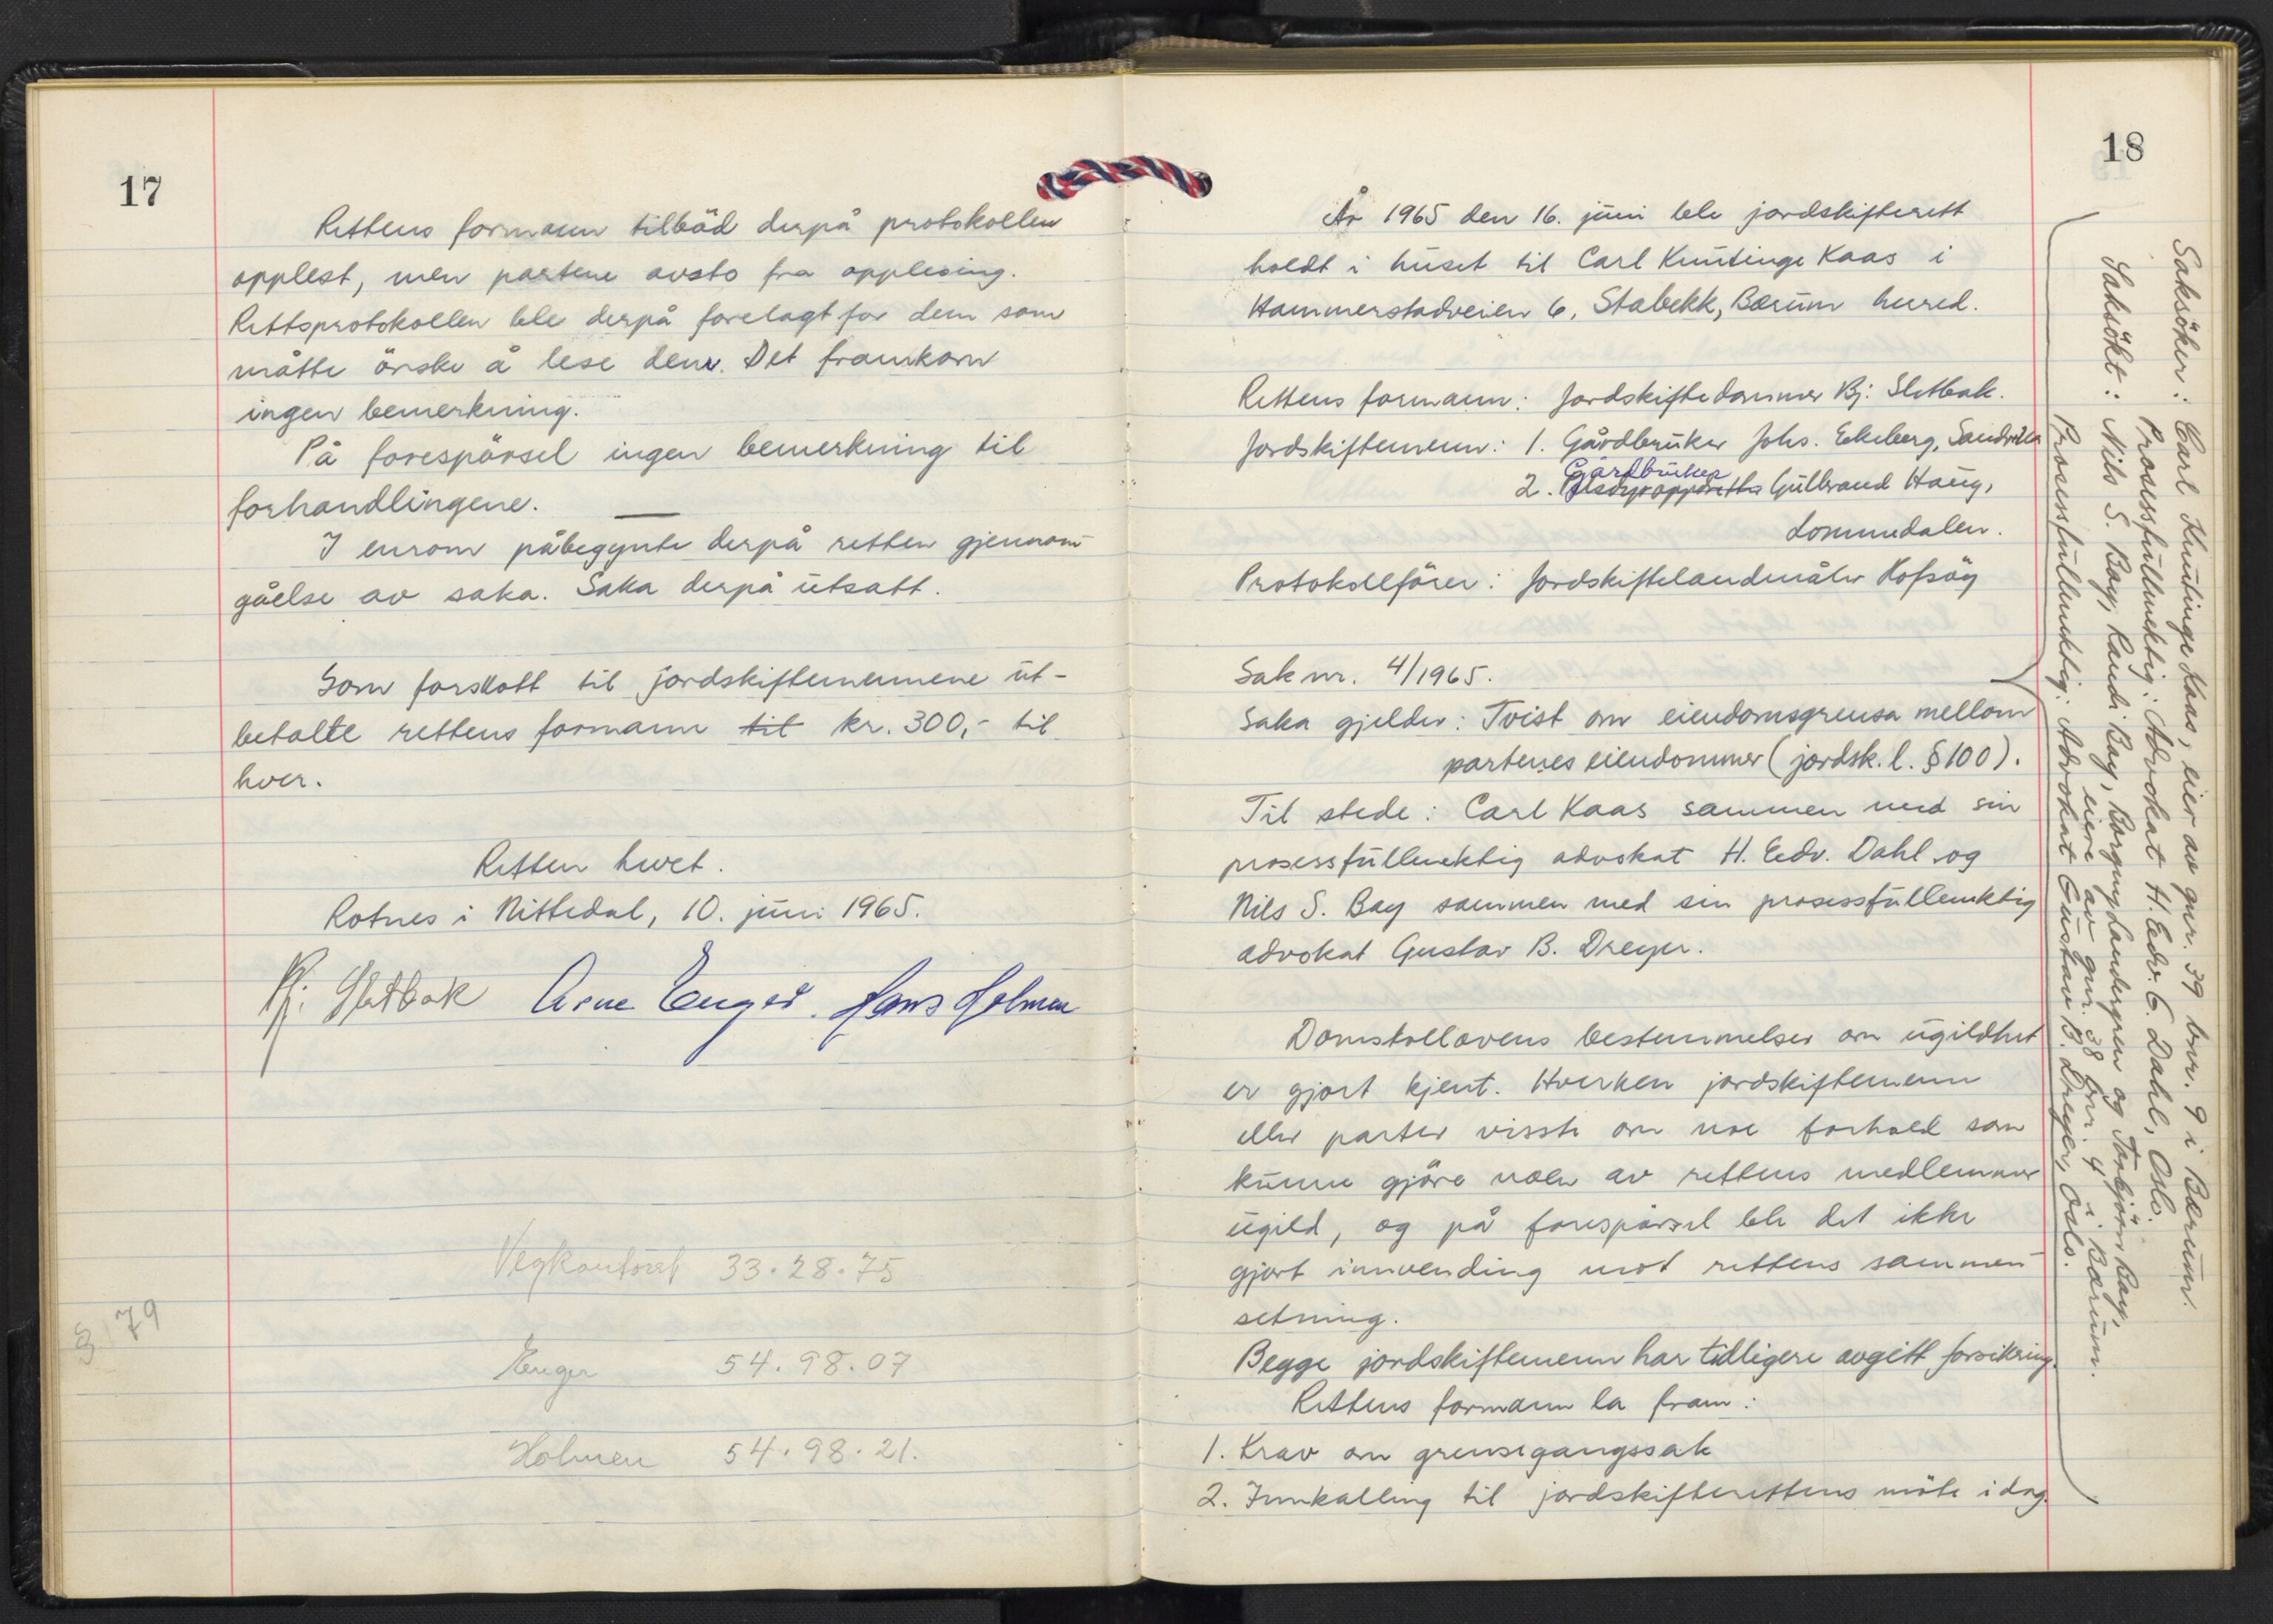 17
Rettens formann tilböd derpå protokollen
opplest, men partene avsto fra opplesing.
Rettsprotokollen ble derpå forelagt for dem som
måtte önske å lese den. Det framkom
ingen bemerkning.
På forespörsel ingen bemerkning til
forhandlingene.
I enrom påbegynte derpå retten gjennom-
gåelse av saka. Saka derpå utsatt.
Som forskott til jordskiftemennene ut-
betalte rettens formann til kr. 300,- til
hver.
Retten hevet.
Rotnes i Nittedal, 10. juni 1965.
Bj. Sletbak Arne Enger. Hans Holmen
Vegkontoret 33.28.75
§ 79
Enger 54.98.07
Holmen 54.98.21.
18
År 1965 den 16. juni ble jordskifterett
holdt i huset til Carl Knutinge Kaas i
Hammerstadveien 6, Stabekk, Bærum herred.
Rettens formann: Jordskiftedommer Bj. Sletbak.
Jordskiftemenn: 1. Gårdbruker Johs. Ekeberg, Sandvika
Gårdbruker
2. Gulbrand Haug,
Lommedalen.
Protokollförer: Jordskiftelandmåler Hofsöy
Sak nr. 4/1965.
Saka gjelder: Tvist om eiendomsgrensa mellom
partenes eiendommer (jordsk.l. §100).
Til stede: Carl Kaas sammen med sin
prosessfullmektig advokat H. Edv. Dahl og
Nils S. Bay sammen med sin prosessfullmektig
advokat Gustav B. Dreyer.
Domstollovens bestemmelser om ugildhet
er gjort kjent. Hverken jordskiftemenn
eller parter visste om noe forhold som
kunne gjöre noen av rettens medlemmer
ugild, og på forespörsel ble det ikke
gjort innvending mot rettens sammen-
setning.
Begge jordskiftemenn har tidligere avgitt forsikring.
Rettens formann la fram:
1. Krav om grensegangssak
2. Innkalling til jordskifterettens möte i dag.
Saksöker: Carl Knutinge Kaas, eier av gnr. 39 bnr. 9 i Bærum.
Prosessfullmektig: Advokat H. Edv. E. Dahl, Oslo.
Saksökt: Nils S. Bay, Randi Bay, Borgny Landergren og Torbjörn Bay,
eiere av gnr. 38 bnr. 4 i Bærum.
Prosessfullmektig: Advokat Gustav B. Dreyer, Oslo.